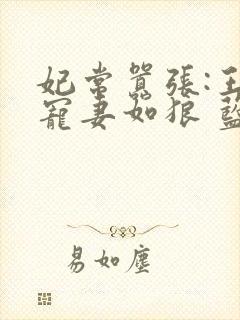 妃常囂張:王
寵妻如狼 藍
易如塵